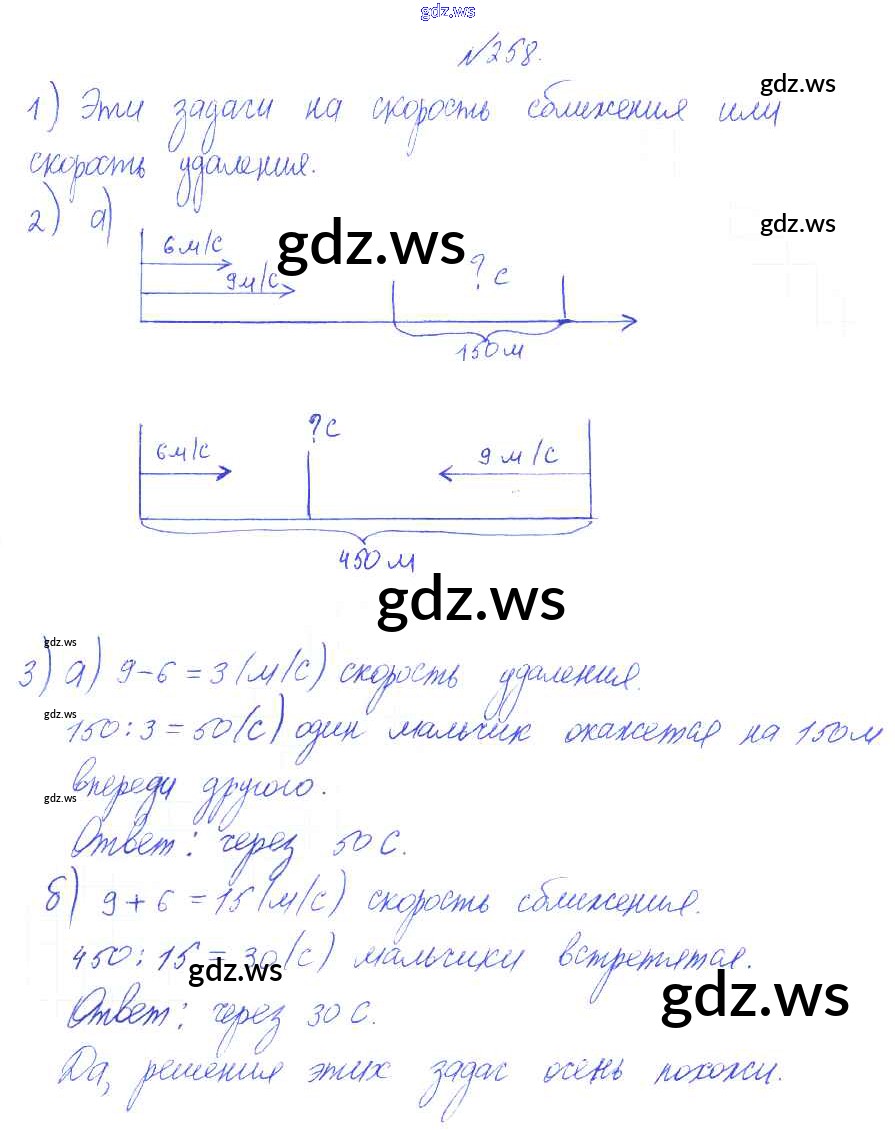 gdz.ws
№258.
gdz.ws
1) Эти задачи на скорость сближения или
скорость удаления.
2) а)
gdz.ws
gdz.ws
6 м/с
9 м/с
? с
150 м
? с
6 м/с
9 м/с
450 м
gdz.ws
gdz.ws
3) а) 9-6=3 (м/с) скорость удаления.
gdz.ws
150:3=50(с) один мальчик окажется на 150 м
gdz.ws
впереди другого.
Ответ: через 50 с.
б) 9+6=15 (м/с) скорость сближения.
450:15=30(с) мальчики встретятся.
gdz.ws
gdz.ws
Ответ: через 30 с.
Да, решения этих задач очень похожи.